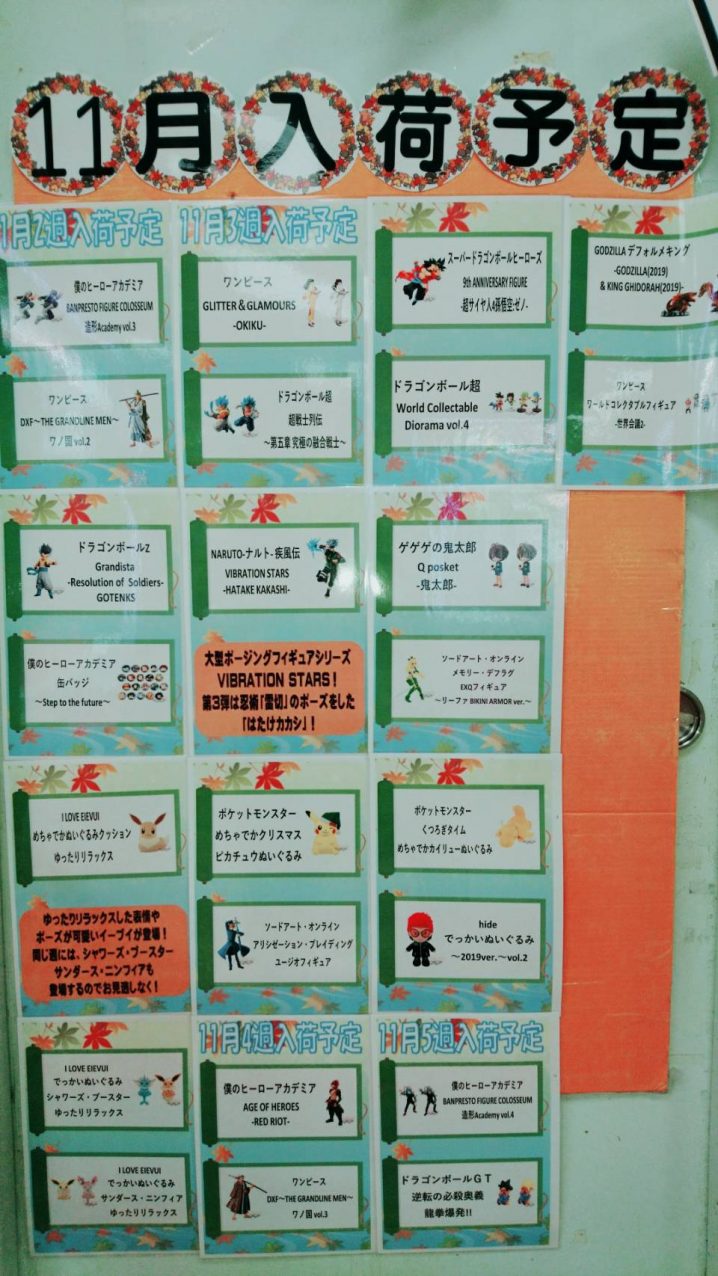 11月入荷予定
11月2週入荷予定
僕のヒーローアカデミア
BANPRESTO FIGURE COLOSSEUM
造形Academy vol.3
ワンピース
DXF～THE GRANDLINE MEN～
ワノ国 vol.2
11月3週入荷予定
ワンピース
GLITTER＆GLAMOURS
-OKIKU-
ドラゴンボール超
超戦士列伝
～第五章 究極の融合戦士～
スーパードラゴンボールヒーローズ
9th ANNIVERSARY FIGURE
-超サイヤ人4孫悟空:ゼノ-
ドラゴンボール超
World Collectable
Diorama vol.4
GODZILLA デフォルメキング
-GODZILLA(2019)
& KING GHIDORAH(2019)-
ワンピース
ワールドコレクタブルフィギュア
-世界会議2-
ドラゴンボールZ
Grandista
-Resolution of Soldiers-
GOTENKS
僕のヒーローアカデミア
缶バッジ
～Step to the future～
NARUTO-ナルト- 疾風伝
VIBRATION STARS
-HATAKE KAKASHI-
大型ポージングフィギュアシリーズ
VIBRATION STARS！
第3弾は忍術「雷切」のポーズをした
「はたけカカシ」！
ゲゲゲの鬼太郎
Q posket
-鬼太郎-
ソードアート・オンライン
メモリー・デフラグ
EXQフィギュア
～リーファ BIKINI ARMOR ver.～
I LOVE EIEVUI
めちゃでかぬいぐるみクッション
ゆったりリラックス
ゆったりリラックスした表情や
ポーズが可愛いイーブイが登場！
同じ週には、シャワーズ・ブースター
サンダース・ニンフィアも
登場するのでお見逃しなく！
ポケットモンスター
めちゃでかクリスマス
ピカチュウぬいぐるみ
ソードアート・オンライン
アリシゼーション・ブレイディング
ユージオフィギュア
ポケットモンスター
くつろぎタイム
めちゃでかカイリューぬいぐるみ
hide
でっかいぬいぐるみ
～2019ver.～vol.2
I LOVE EIEVUI
でっかいぬいぐるみ
シャワーズ・ブースター
ゆったりリラックス
I LOVE EIEVUI
でっかいぬいぐるみ
サンダース・ニンフィア
ゆったりリラックス
11月4週入荷予定
僕のヒーローアカデミア
AGE OF HEROES
-RED RIOT-
ワンピース
DXF～THE GRANDLINE MEN～
ワノ国 vol.3
11月5週入荷予定
僕のヒーローアカデミア
BANPRESTO FIGURE COLOSSEUM
造形Academy vol.4
ドラゴンボールＧＴ
逆転の必殺奥義
龍拳爆発!!